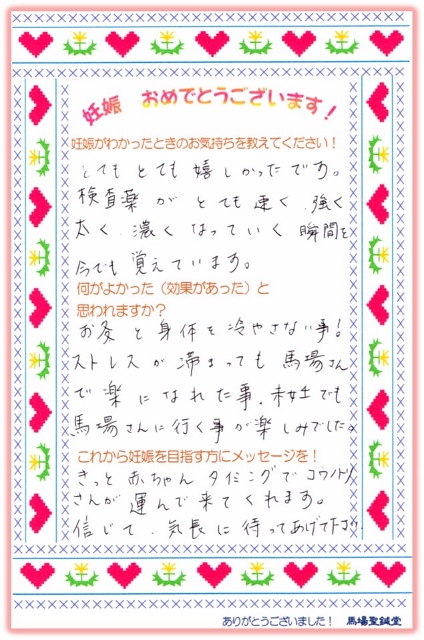 妊娠 おめでとうございます！
妊娠がわかったときのお気持ちを教えてください！
とてもとても嬉しかったです。
検査薬がとても速く、強く
太く、濃くなっていく瞬間を
今でも覚えています。
何がよかった（効果があった）と
思われますか？
お灸と身体を冷やさない事！
ストレスが溜まっても馬場さん
で楽になれた事。妊でも
馬場さんに行く事が楽しみでした。
これから妊娠を目指す方にメッセージを！
きっと赤ちゃんタイミングでコウノトリ
さんが運んで来てくれます。
信じて、気長に待ってあげて下さい
ありがとうございました！ 馬場聖鍼堂